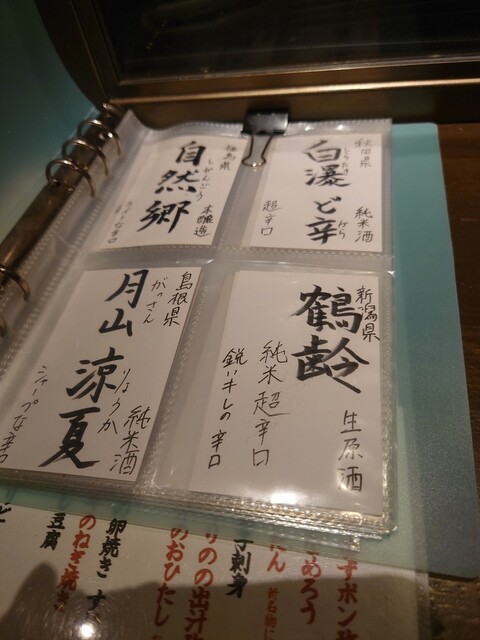 秋田県
白瀑 ど辛
しらたき
から
純米酒
超辛口
福島県
自然郷
しぜんごう
本醸造
新潟県
鶴齢
生原酒
純米超辛口
鋭いキレの辛口
島根県
がっさん
月山 涼夏
りょうか
純米酒
シャープな辛口
刺身
のおひたし
卵焼き
のねぎ焼き
豆腐